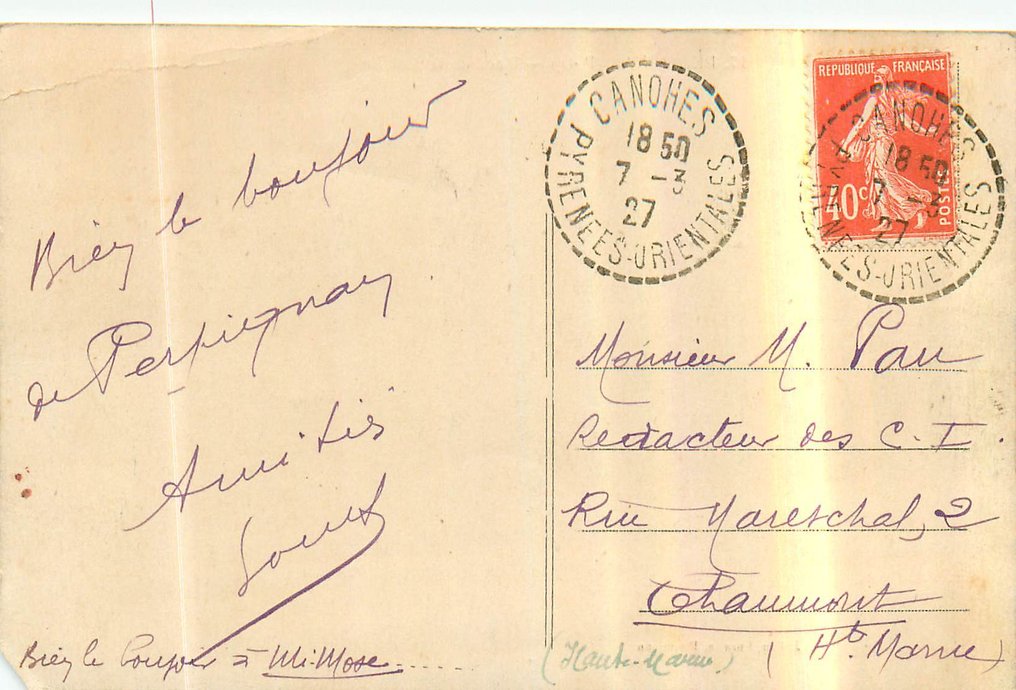 Bien le bonjour
de Perpignan
Amitiés
Bien le bonjour à Mimose.....
CANOHES
18 50
7 -3
27
PYRENEES-ORIENTALES
REPUBLIQUE FRANÇAISE
40c
POSTES
CANOHES
18 50
7 -3
27
PYRENEES-ORIENTALES
Monsieur M. Pau
Redacteur des C. I.
Rue Mareschal, 2
Chaumont
(Hte Marne)
(Haute-Marne)